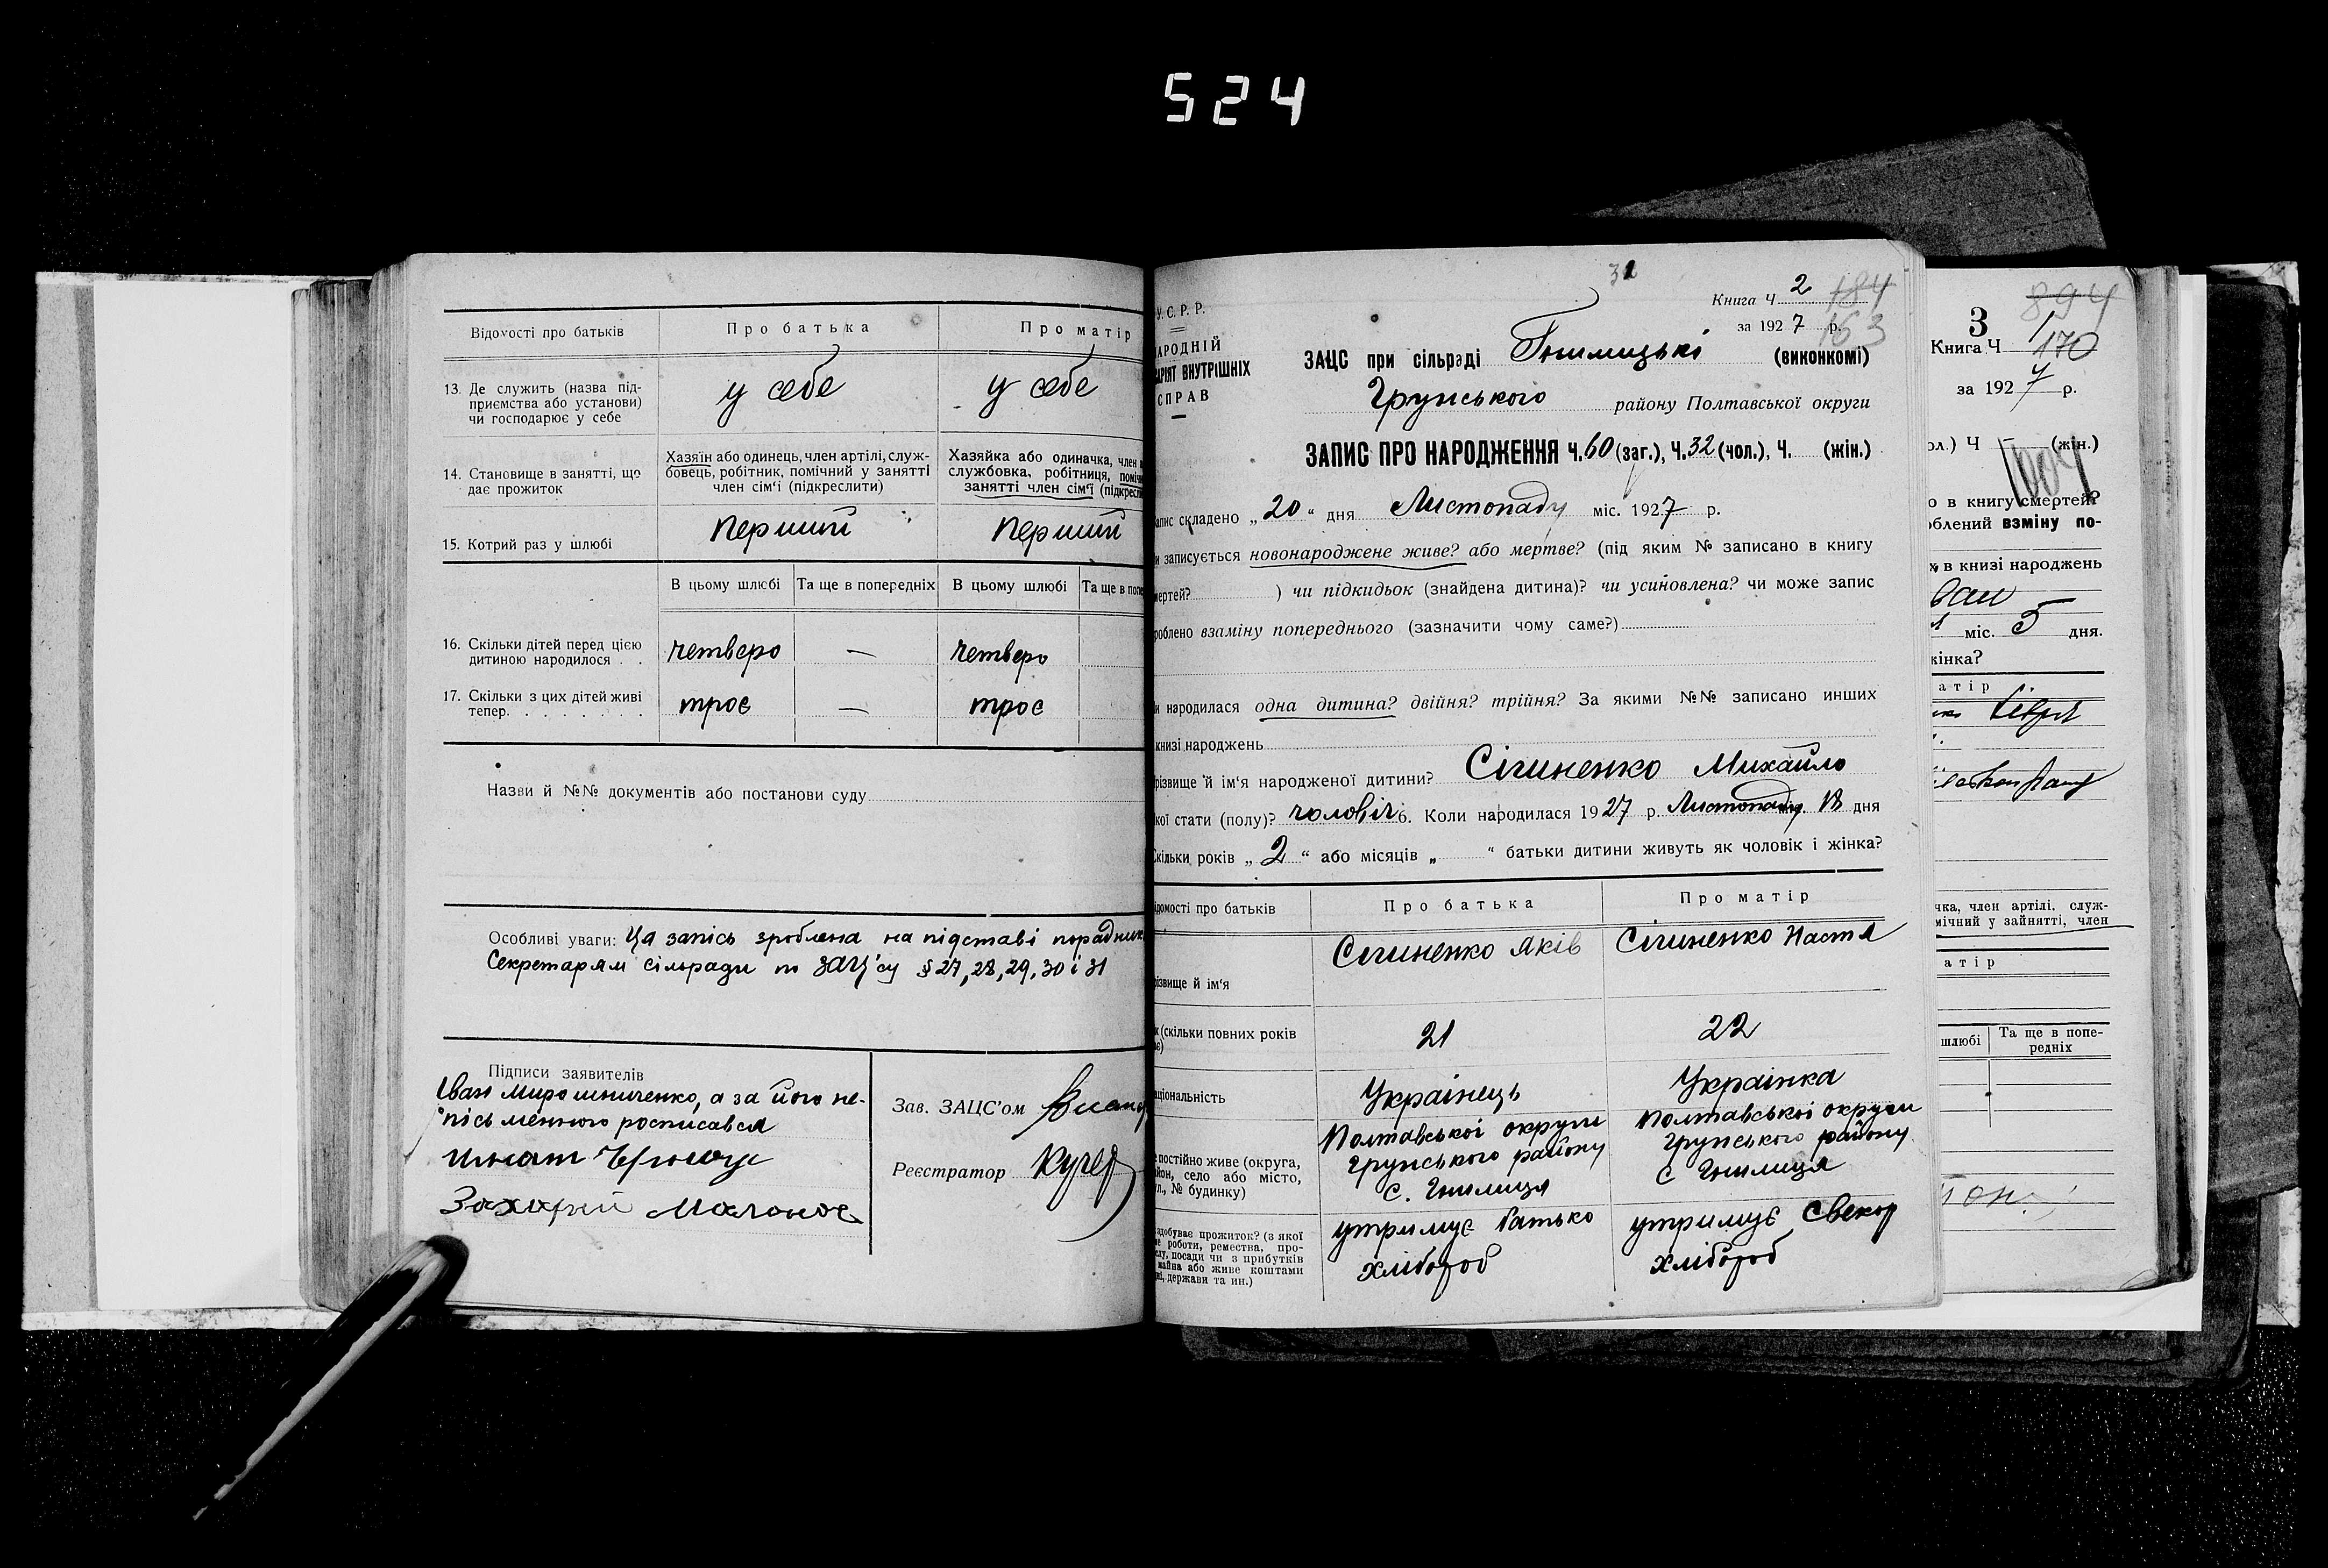 524
Відомості про батьків
Про батька
Про матір
13. Де служить (назва під-
приємства або установи)
чи господарює у себе
у себе
у себе
14. Становище в занятті, що
дає прожиток
Хазяїн або одинець, член артілі, служ-
бовець, робітник, помічний у занятті
член сім'ї (підкреслити)
Хазяйка або одиначка, член
службовка, робітниця,
занятті член сім'ї
15. Котрий раз у шлюбі
перший
перший
В цьому шлюбі
Та ще в попередніх
В цьому шлюбі
Та ще в
16. Скільки дітей перед цією
дитиною народилося . .
четверо
—
четверо
17. Скільки з цих дітей живі
тепер. . . . . . . .
троє
—
троє
Назви й №№ документів або постанови суду
Особливі уваги: Ця запісь зроблена на підставі
Секретарям сільради по ЗАЦ'су § 27, 28, 29, 30 і 31
Підписи заявителів
Іван Мирошниченко, а за його не-
пісьменного росписався
Захарій
Зав. ЗАЦС'ом
Реєстратор Кучер
31
У.С.Р.Р.
ВНУТРІШНІХ
СПРАВ
Книга Ч 2 184
за 1927 р. 163
ЗАЦС при сільраді Гнилицькі (виконкомі)
Грунського району Полтавської округи
ЗАПИС ПРО НАРОДЖЕННЯ Ч. 60 (заг.), Ч. 32 (чол.), Ч. (жін.)
складено „20“ дня Листопаду міс. 1927 р.
записується новонароджене живе? або мертве? (під яким № записано в книгу
) чи підкидьок (знайдена дитина)? чи усиновлена? чи може запис
взаміну попереднього (зазначити чому саме?)
народилася одна дитина? двійня? трійня? За якими №№ записано инших
книзі народжень
й ім'я народженої дитини? Січиненко Михайло
стати (полу)? чоловіч 6. Коли народилася 1927 р. Листопаду 18 дня
років „2“ або місяців „ “ батьки дитини живуть як чоловік і жінка?
про батьків
Про батька
Про матір
й ім'я
Січиненко Яків
Січиненко Настя
(скільки повних років
21
22
Українець
Українка
постійно живе (округа,
село або місто,
№ будинку)
Полтавської округи
Грунського району
с. Гнилиця
Полтавської округи
Грунського району
с Гнилиця
здобуває прожиток? (з якої
роботи, ремества, про-
посади чи з прибутків
майна або живе коштами
держави та ин.)
утримує батько
хлібороб
утримує свекор
хлібороб
894
3
Книга Ч 1
170
за 1927 р.
Ч (жін.)
1004
в книгу смертей?
взміну по-
в книзі народжень
міс. 5 дня.
член артілі, служ-
у зайнятті, член
шлюбі
Та ще в попе-
редніх